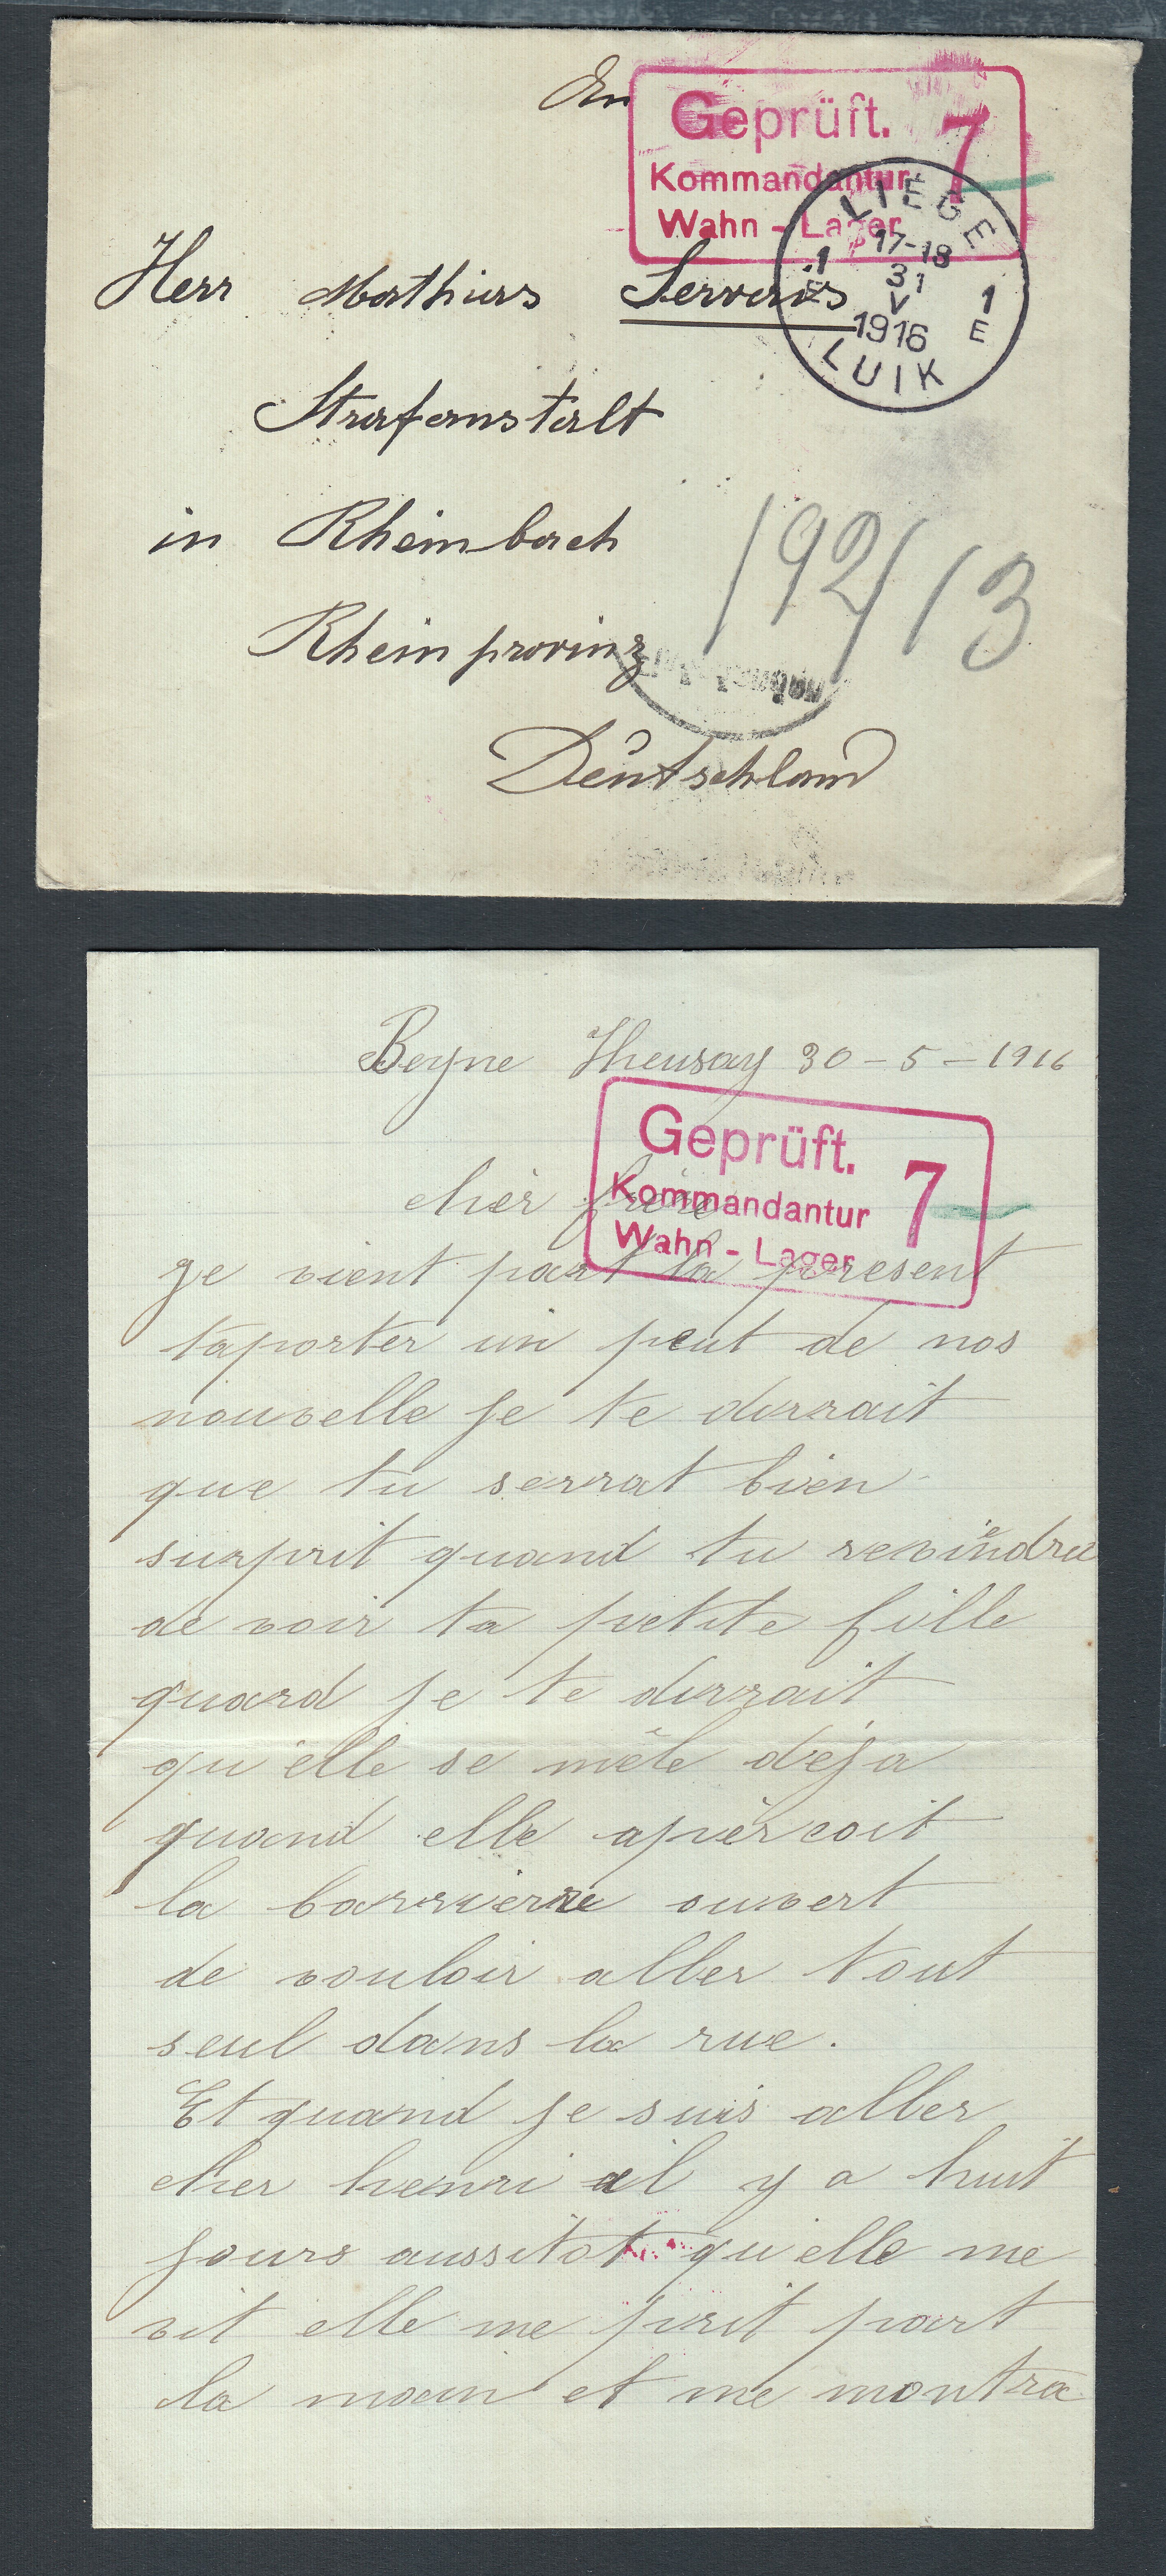 An
Geprüft.
Kommandantur
Wahn - Lager
7
LIÉGE
1 17-18 1
E 31 E
V
1916
LUIK
Herr Mathieus Servais
Strafanstalt
in Rheinbach
192/13
Rheinprovinz
Deutschland
Beyne Heusay 30-5-1916
Geprüft.
Kommandantur
Wahn - Lager
7
cher frère
je vient part la present
taporter un peut de nos
nouvelle je te dirrait
que tu serrat bien
surprit quand tu reviendra
de voir ta petite fille
quard je te dirrait
qu'elle se mêle déja
quand elle apercoit
la barrierre ouvert
de vouloir aller tout
seul dans la rue.
Et quand je suis aller
cher henri il y a huit
jours aussitot qu'elle me
vit elle me prit part
la main et me montra